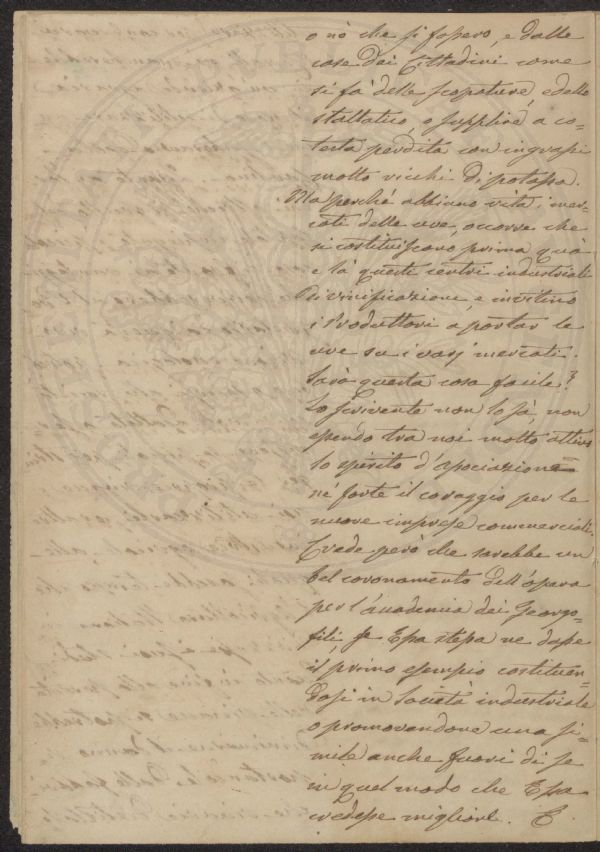 o nò che si fossero, e dalle
case dai Cittadini come
si fà delle scopature, e dello
stallatico, o supplire a co-
testa perdita con ingrassi
molto ricchi di potassa.
Ma perché abbiano vita i mer-
cati delle uve, occorre che
si costituiscano prima quà
e là questi centri industriali
di vinificazione, e invitino
i Produttori a portar le
uve su i varj mercati.
Sarà questa cosa facile?
Lo Scrivente non lo sà, non
essendo tra noi molto attivo
lo spirito d'associazione
né forte il coraggio per le
nuove imprese commerciali.
Crede però che sarebbe un
bel coronamento dell'opera
per l'Accademia dei Georgo-
fili, se Essa stessa ne dasse
il primo esempio costituen-
dosi in Società industriale
o promovendone una si-
mile anche fuori di se
in quel modo che Essa
credesse migliore. E